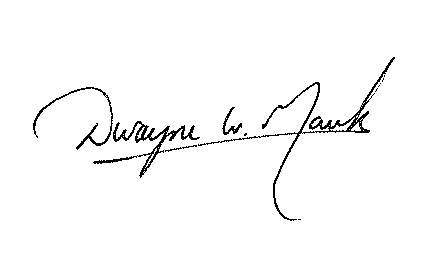 Dwayne W. Mauk